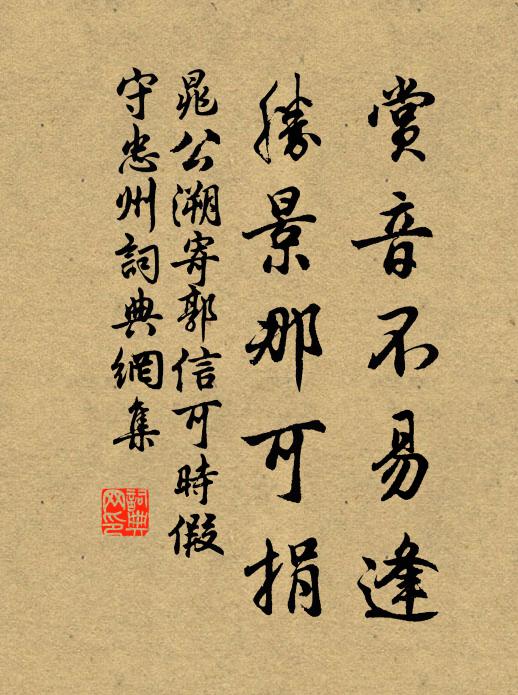 賞音不易逢
勝景那可捐
晁公溯寄郭信可時假
守忠州詞典網集
詞典网印